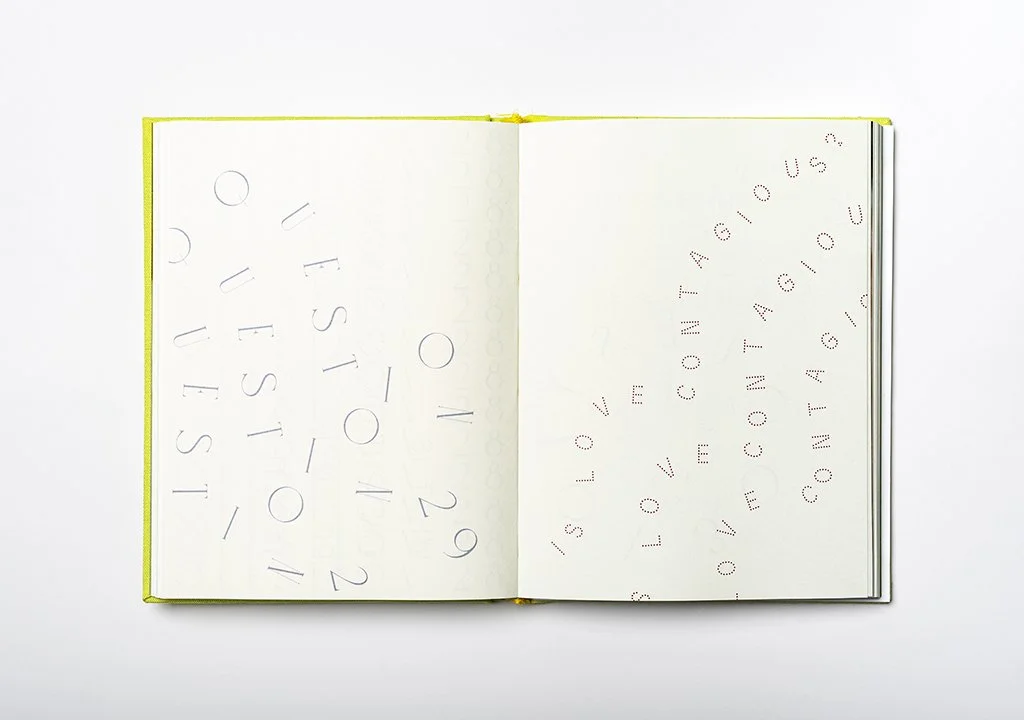 QUESTION
QUESTION 29
UESTION 2
IS LOVE CONTAGIOUS?
S LOVE CONTAGIOU
LOVE CONTAGIO